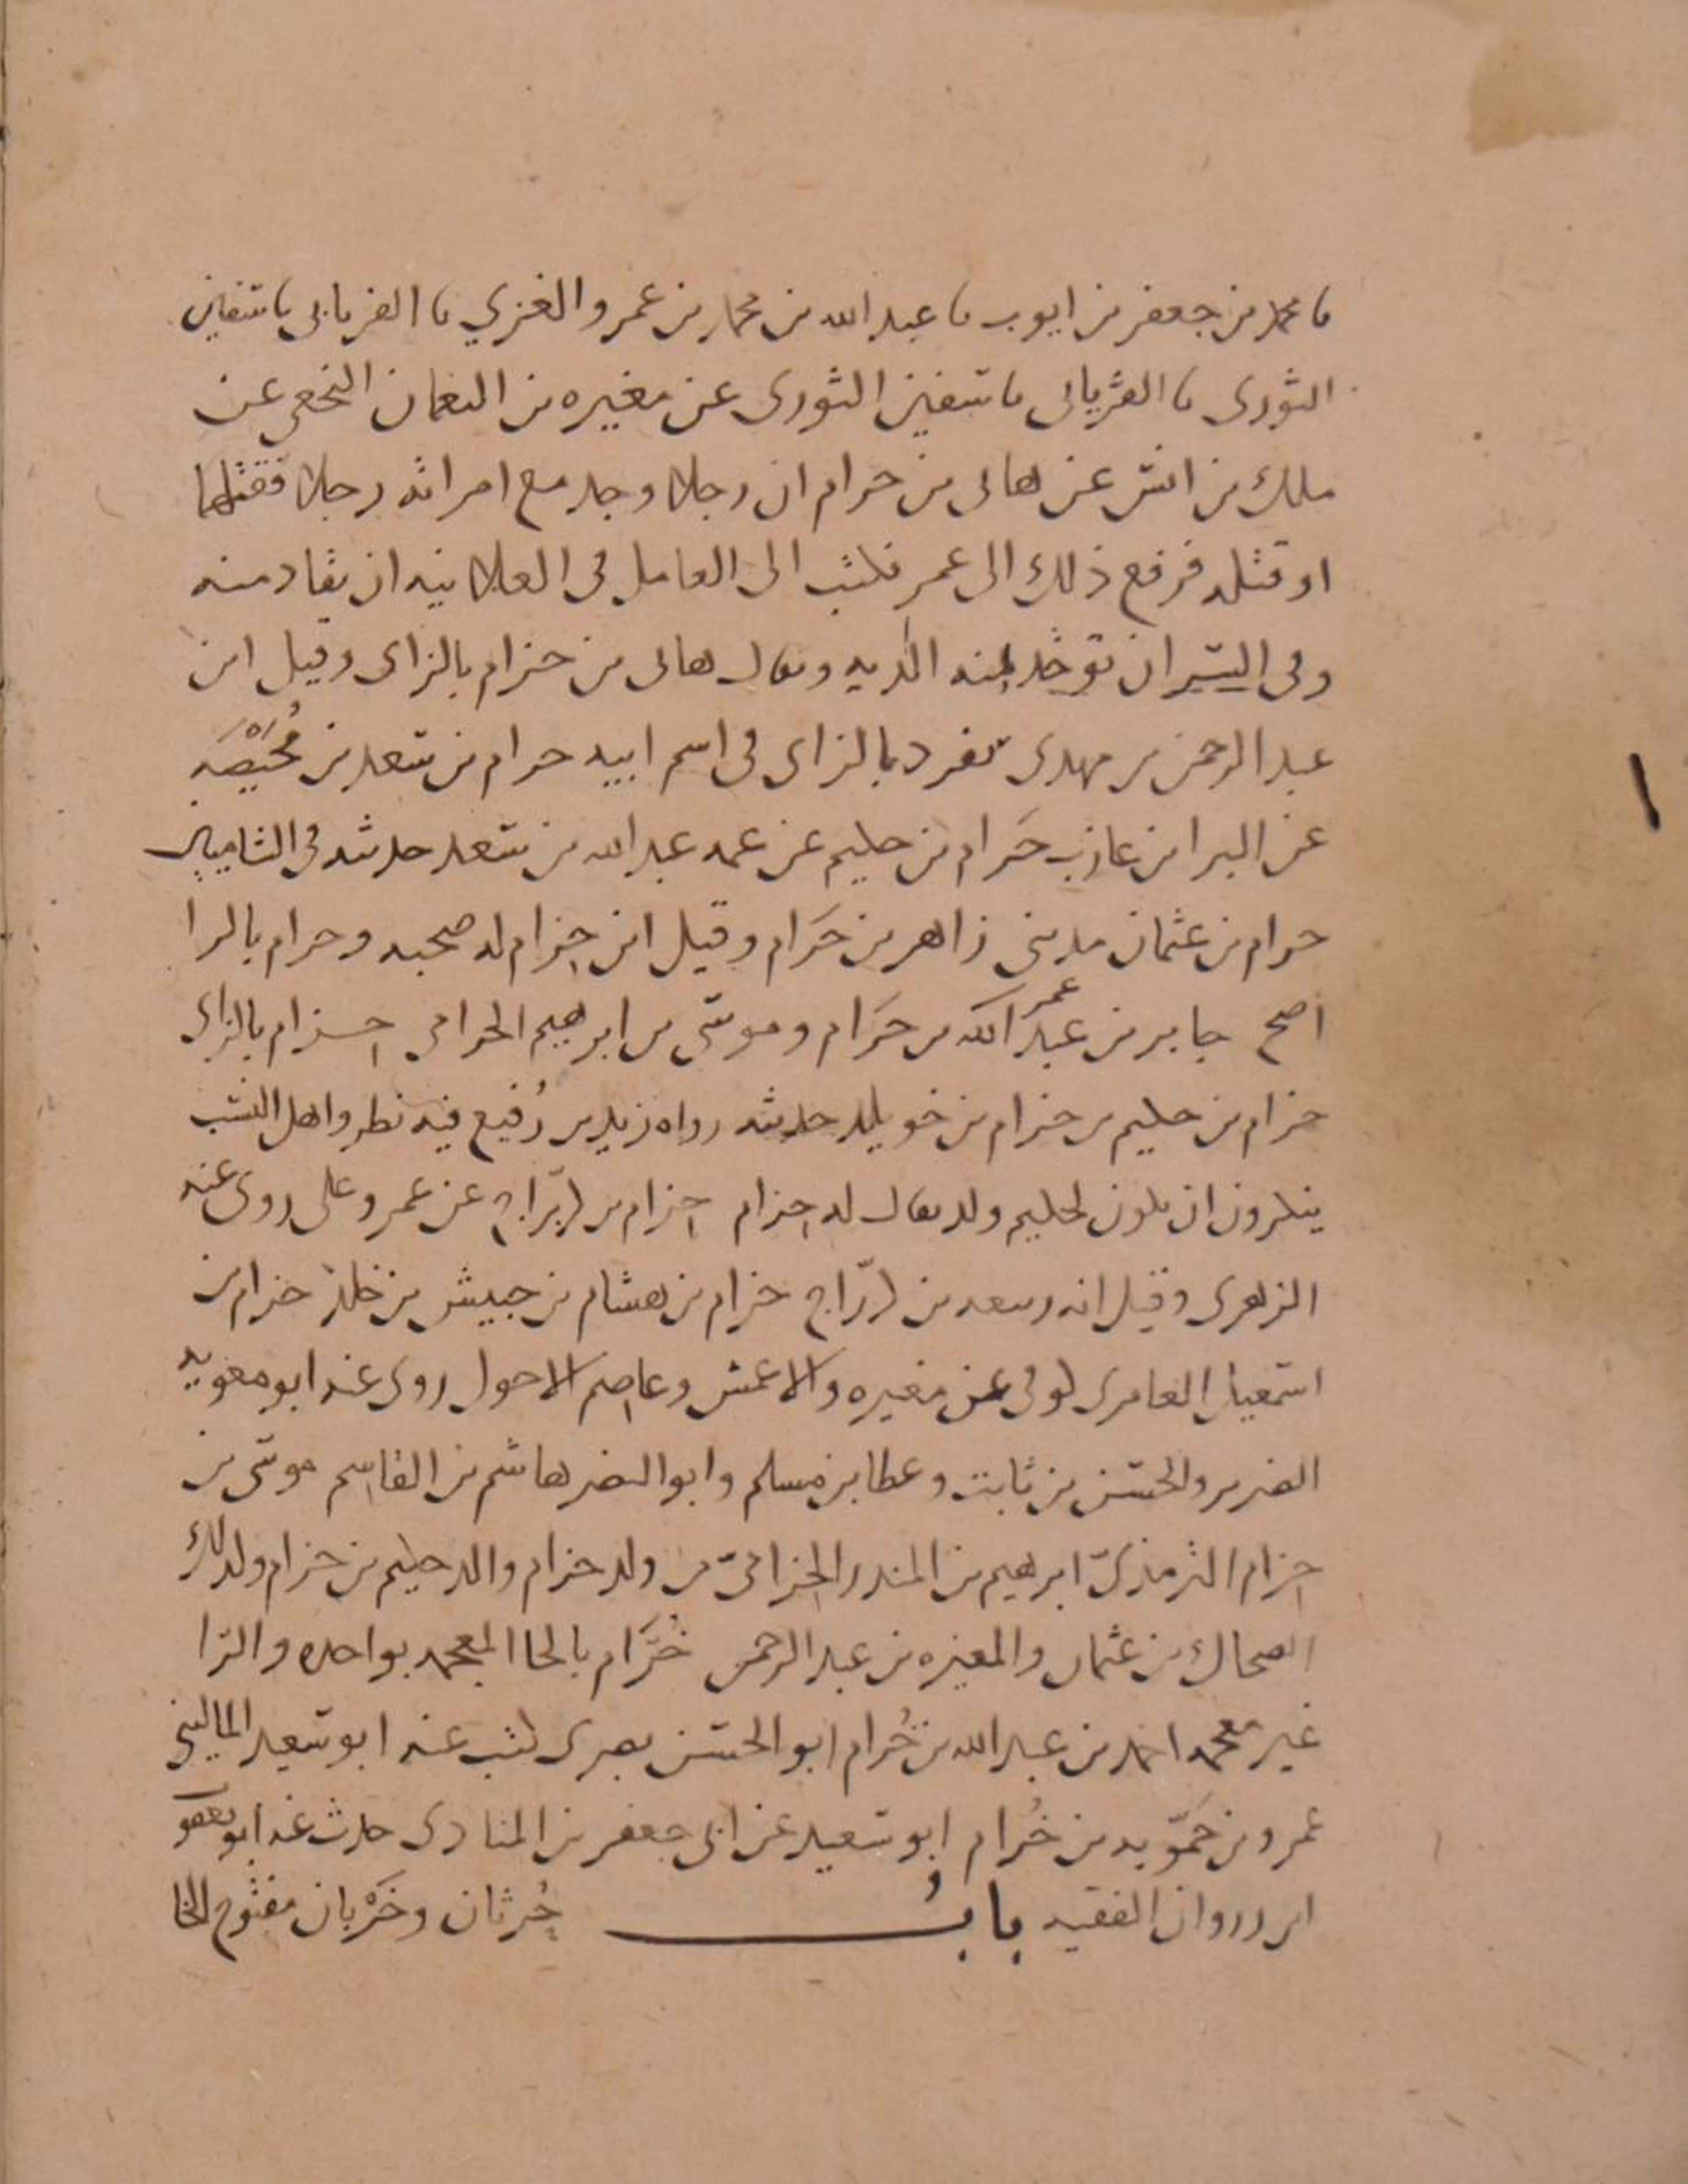 نا محمد بن جعفر بن ايوب نا عبد الله بن محمد بن عمرو الغزي نا الفريابى نا سفين
الثورى نا الفريابى نا سفين الثورى عن مغيره بن النعمان النخعى عن
ملك بن انس عن هانى بن حرام ان رجلا وجد مع امراته رجلا فقتلهما
او قتله فرفع ذلك الى عمر فكتب الى العامل فى العلانيه ان يقاد منه
وفى السر ان توخذ منه الديه ويقال هانى بن حزام بالزاى وقيل ابن
عبد الرحمن بن مهدى تفرد بالزاى فى اسم ابيه حرام بن سعد بن مُحَيْصَه
عن البرا بن عازب حَرام بن حكيم عن عمه عبد الله بن سعد حديثه فى الشاميين
حرام بن عثمان مدينى زاهر بن حَرَام وقيل ابن حِزام له صحبه وحرام بالرا
اصح جابر بن عبد الله بن عمر بن حَرَام وموسى بن ابرهيم الحرامى حــزام بالزاى
حزام بن حكيم بن حزام بن خويلد حديثه رواه زيد بن رُفيع فيه نظر واهل النسب
ينكرون ان يكون لحكيم ولد يقال له حزام حزام بن دَرّاج عن عمر وعلى روى عنه
الزهرى وقيل انه ربيعه بن درّاج حزام بن هشام بن حبيش بن خلد حزام بن
اسمعيل العامرى كوفى عن مغيره والاعمش وعاصم الاحول روى عنه ابو معويه
الضرير والحسن بن ثابت وعطا بن مسلم وابو النضر هاشم بن القاسم موسى بن
حزام الترمذىّ ابرهيم بن المنذر الحِزامىّ من ولد حزام والد حكيم بن حزام وكذلك
الضحاك بن عثمان والمغيره بن عبد الرحمن خُرَّام بالخا المعجمه بواحده والرا
غير معجمه احمد بن عبد الله بن خُرام ابو الحسن بصرى كتب عنه ابو سعيد المالينى
عمرو بن حَمّويه بن خُرام ابو سعيد عن ابى جعفر بن المنادى حدث عنه ابو يعقو
ابن دروان الفقيه بابُ حُرثان وخَرْبان مفتوح الخا